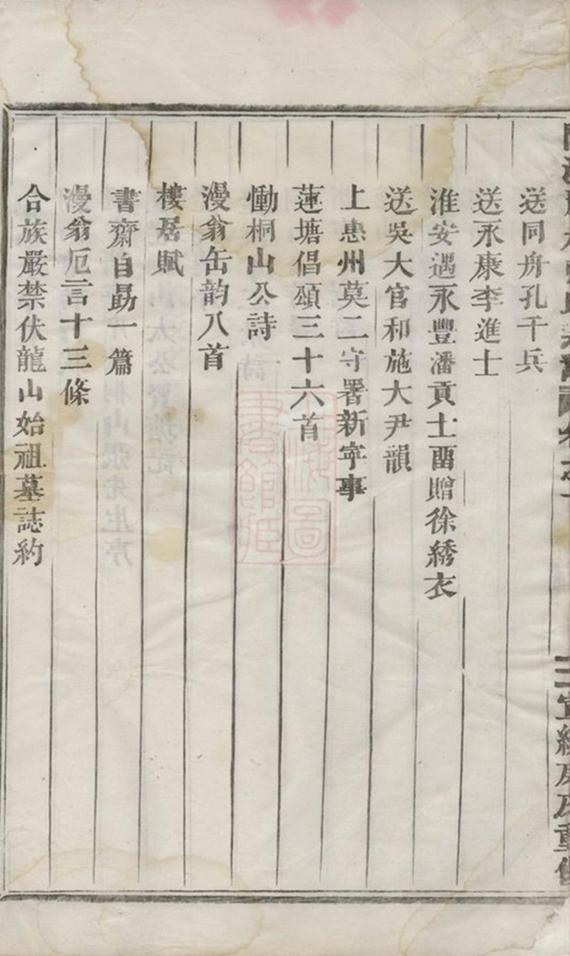 送同舟孔千兵
送永康李進士
淮安遇永豐潘貢士畱贈徐綉衣
送吳大官和施大尹韻
上惠州莫二守署新寧事
蓮塘倡頌三十六首
慟桐山公詩
漫翁缶韵八首
樓居賦
書齋自勗一篇
漫翁卮言十三條
合族嚴禁伏龍山始祖墓誌約